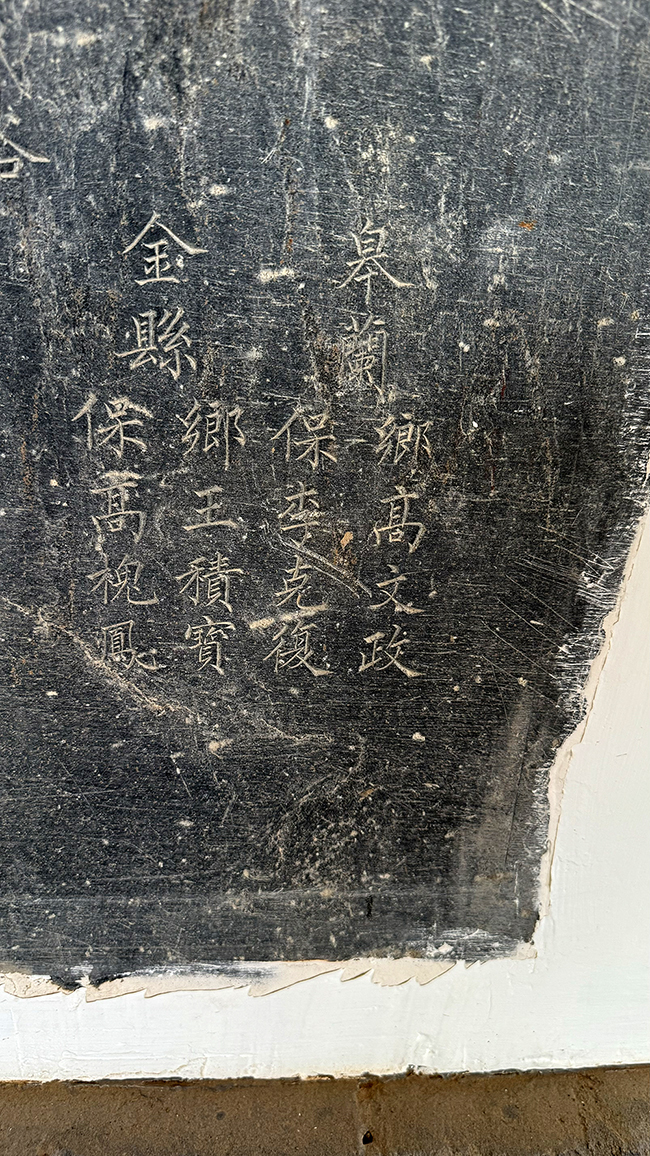 皋蘭
鄉高文政
保李克復
金縣
鄉王積寶
保高槐鳳